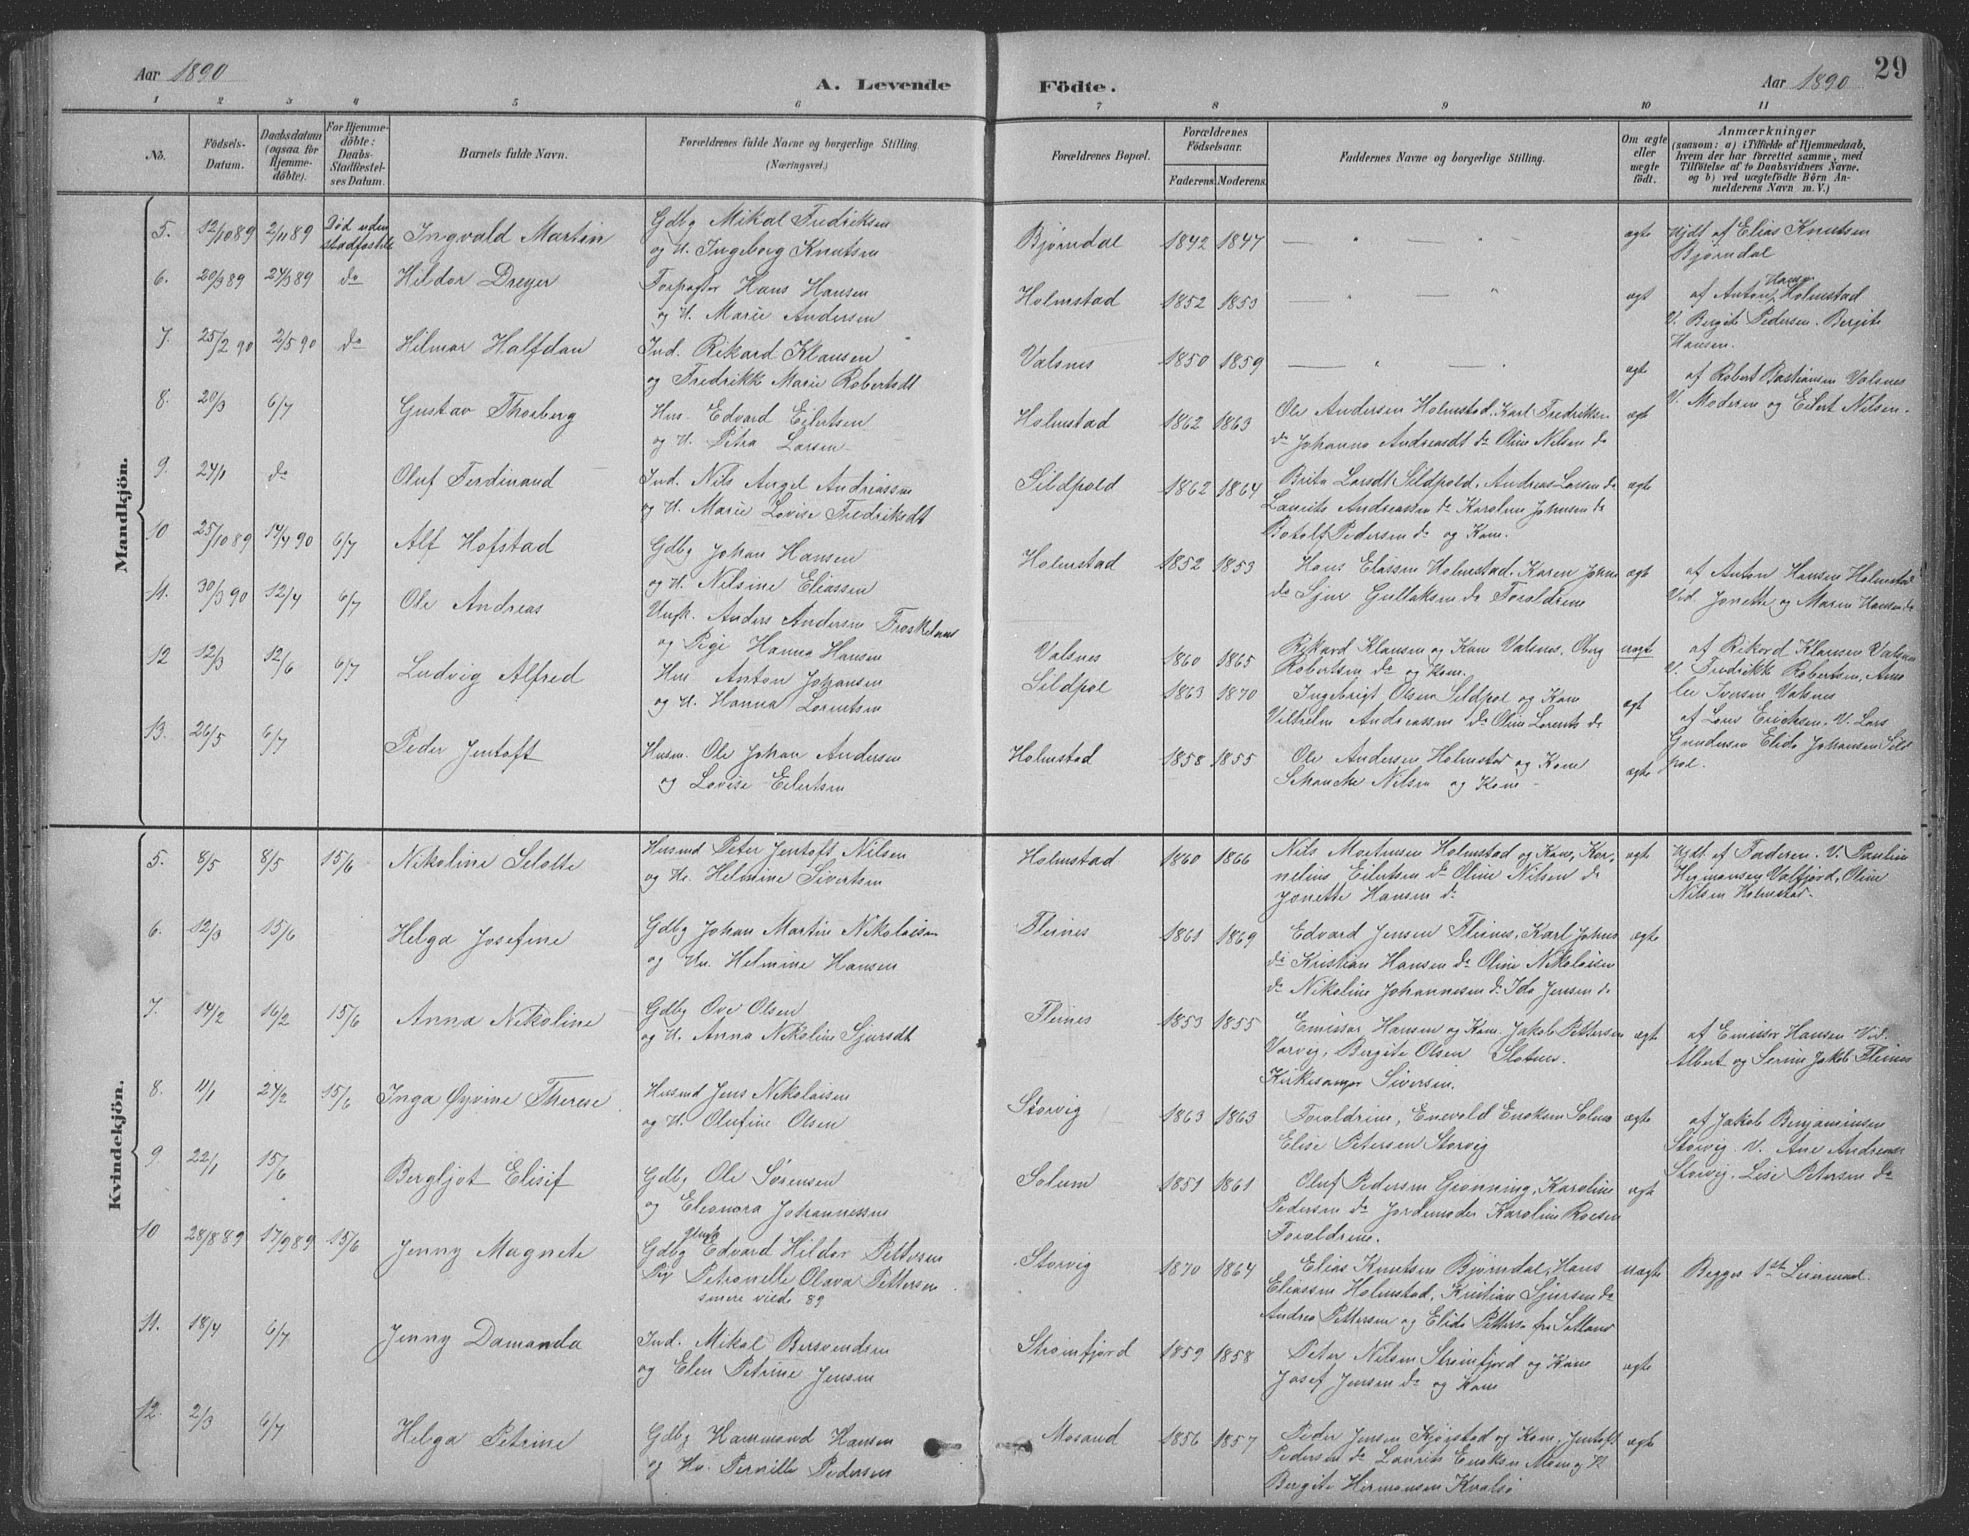 Aar 1890
A. Levende Födte.
Aar 1890
29
1 2 3 4 5 6 7 8 9 10 11
No.
Födsels-Datum.
Daabsdatum (ogsaa for Hjemme-döbte).
For Hjemme-döbte: Daabs-Stadfæstel-ses Datum.
Barnets fulde Navn.
Forældrenes fulde Navne og borgerlige Stilling. (Næringsvei.)
Forældrenes Bopæl.
Forældrenes Födselsaar.
Faderens. Moderens.
Faddernes Navne og borgerlige Stilling.
Om ægte eller uægte födt.
Anmærkninger
(saasom: a) i Tilfælde af Hjemmedaab,
hvem der har forrettet samme, med
Tilföielse af to Daabsvidners Navne,
og b) ved uægtefödte Börn An-
melderens Navn m. V.)
Mandkjön.
5. 12/10 89 2/11 89 Død uden stadfæstelse Ingvald Martin
Gdbg Mikal Fredriksen
og H. Ingeborg Knutsen
Bjørndal 1842 1847 ægte
Hjdt af Elias Knutsen
Bjørndal
6. 20/3 89 24/3 89 do Hildor Dreyer
Forpagter Hans Hansen
og H. Marie Andersen
Holmstad 1852 1853 ægt
af Anton Hansen Holmstad
V. Bergite Pedersen. Bergite
Hansen.
7. 25/2 90 2/5 90 do Hilmar Halfdan
Ind. Rikard Klausen
og Fredrikk Marie Robertsdt
Valsnes 1850 1859 ægte
af Robert Bastiansen Valsnes
V. Moderen og Eilert Nilsen.
8. 20/3 6/7 Gustav Thorberg
Hus. Edvard Eilertsen
og H. Petra Larsen
Holmstad 1862 1863
Ole Andersen Holmstad. Karl Fredriksen
do Johanna Andreasdt do Oline Nilsen do
ægt
9. 24/1 do Oluf Ferdinand
Ind. Nils Angel Andreassen
og H. Marie Lovise Fredriksdt
Sildpold 1862 1864
Brita Larsdt Sildpold. Andreas Larsen do
Laurits Andreassen do Karoline Johnsen do
Botolf Pedersen do og Kone.
ægte
10 25/10 89 17/4 90 6/7 Alf Hofstad
Gdbg Johan Hansen
og H. Nilsine Eliassen
Holmstad 1852 1853
Hans Eliassen Holmstad. Karen Johns
do Sjur Gullaksen do Forældrene
ægt
af Anton Hansen Holmstad
Vid. Jonette og Maren Hansen do
11. 30/3 90 12/4 6/7 Ole Andreas
Ungk. Anders Andersen
og Pige Hanna Hansen
Valsnes 1860 1865
Rikard Klausen og Kone Valsnes. Oberg
Robertsen do og Kone.
uægte
af Rikard Klausen Valsnes
V. Fredrikk Robertsen,
Iversen Valsnes
12 12/3 12/6 6/7 Ludvig Alfred
Hus Anton Johansen
og H. Hanna Lorentsen
Sildpol 1863 1870
Ingebrigt Olsen Sildpol og Kone
Vilhelm Andreassen do Oline Lorents do
ægt
af Lars Erichsen. V. Lars
Gundersen Elida Johansen Sild
pol.
13. 26/5 6/7 Peder Jentoft
Husm. Ole Johan Andersen
og Lovise Eilertsen
Holmstad 1858 1855
Ole Andersen Holmstad og Kone
Schancke Nilsen og Kone
ægte
Kvindekjön.
5. 8/5 8/5 15/6 Nikoline Selotte
Husmd Peter Jentoft Nilsen
og Hu. Helmine Sivertsen
Holmstad 1860 1866
Nils Mortensen Holmstad og Kone, Kor-
nelius Eilertsen do Oline Nilsen do
Jonette Hansen do
ægte
Hjdt af Faderen. V. Pauline
Hermansen Valfjord, Oline
Nilsen Holmstad.
6. 12/3 15/6 Helga Josefine
Gdbg Johan Martin Nikolaisen
og Hu. Helmine Hansen
Fleines 1861 1869
Edvard Jensen Fleines, Karl Johns
do Kristian Hansen do Oline Nikolaisen
do Nikoline Johannesen do Ida Jensen do
ægte
7. 14/2 16/2 15/6 Anna Nikoline
Gdbg Ove Olsen
og H. Anna Nikoline Sjursdt
Fleines 1853 1855
Emissær Hansen og Kone Jakob Pettersen
Vorvig, Bergite Olsen Slotnes.
Kirkesanger Siversen.
ægte
af Emissær Hansen Vid.
Albert og Serine Jakobs Fleines
8. 11/1 24/2 15/6 Inga Øyvine Therese
Husmd Jens Nikolaisen
og H. Olufine Olsen
Storvig 1863 1863
Forældrene, Enevold Enoksen Solum
Elise Petersen Storvig
ægte
af Jakob Benjaminsen
Storvig V. Ane Andreasd
Storvig, Lise Petersen do
9 22/1 15/6 Bergljot Elisif
Gdbg Ole Sørensen
og Eleonora Johannessen
Solum 1851 1861
Oluf Pedersen Grønning, Karoline
Pedersen do Jordemoder Karoline Roesen
Forældrene.
ægte
10 28/8 89 17/9 89 15/6 Jenny Magnete
Gdbg Edvard Hildor Pettersen
Pig Petronelle Olava Pettersen
senere viede 89
Storvig 1870 1864
Elias Knutsen Bjørndal, Hans
Eliassen Holmstad, Kristian Sjursen do
Andrea Pettersen og Elida Petters fra Sætland
uægte
Begges 1ste Leiermaal
11. 18/4 6/7 Jenny Damanda
Ind. Mikal Bersvendsen
og Elen Petrine Jensen
Strømfjord 1859 1858
Peter Nilsen Strømfjord og Kone
Josef Jensen do og Kone
ægte
12. 2/3 6/7 Helga Petrine
Gdbg Hammond Hansen
og Hu. Pernille Pedersen
Mosand 1856 1857
Peder Jensen Kjørstad og Kone, Jentoft
Pedersen do Laurits Enoksen
Bergite Hermansen Kvalsø
ægte